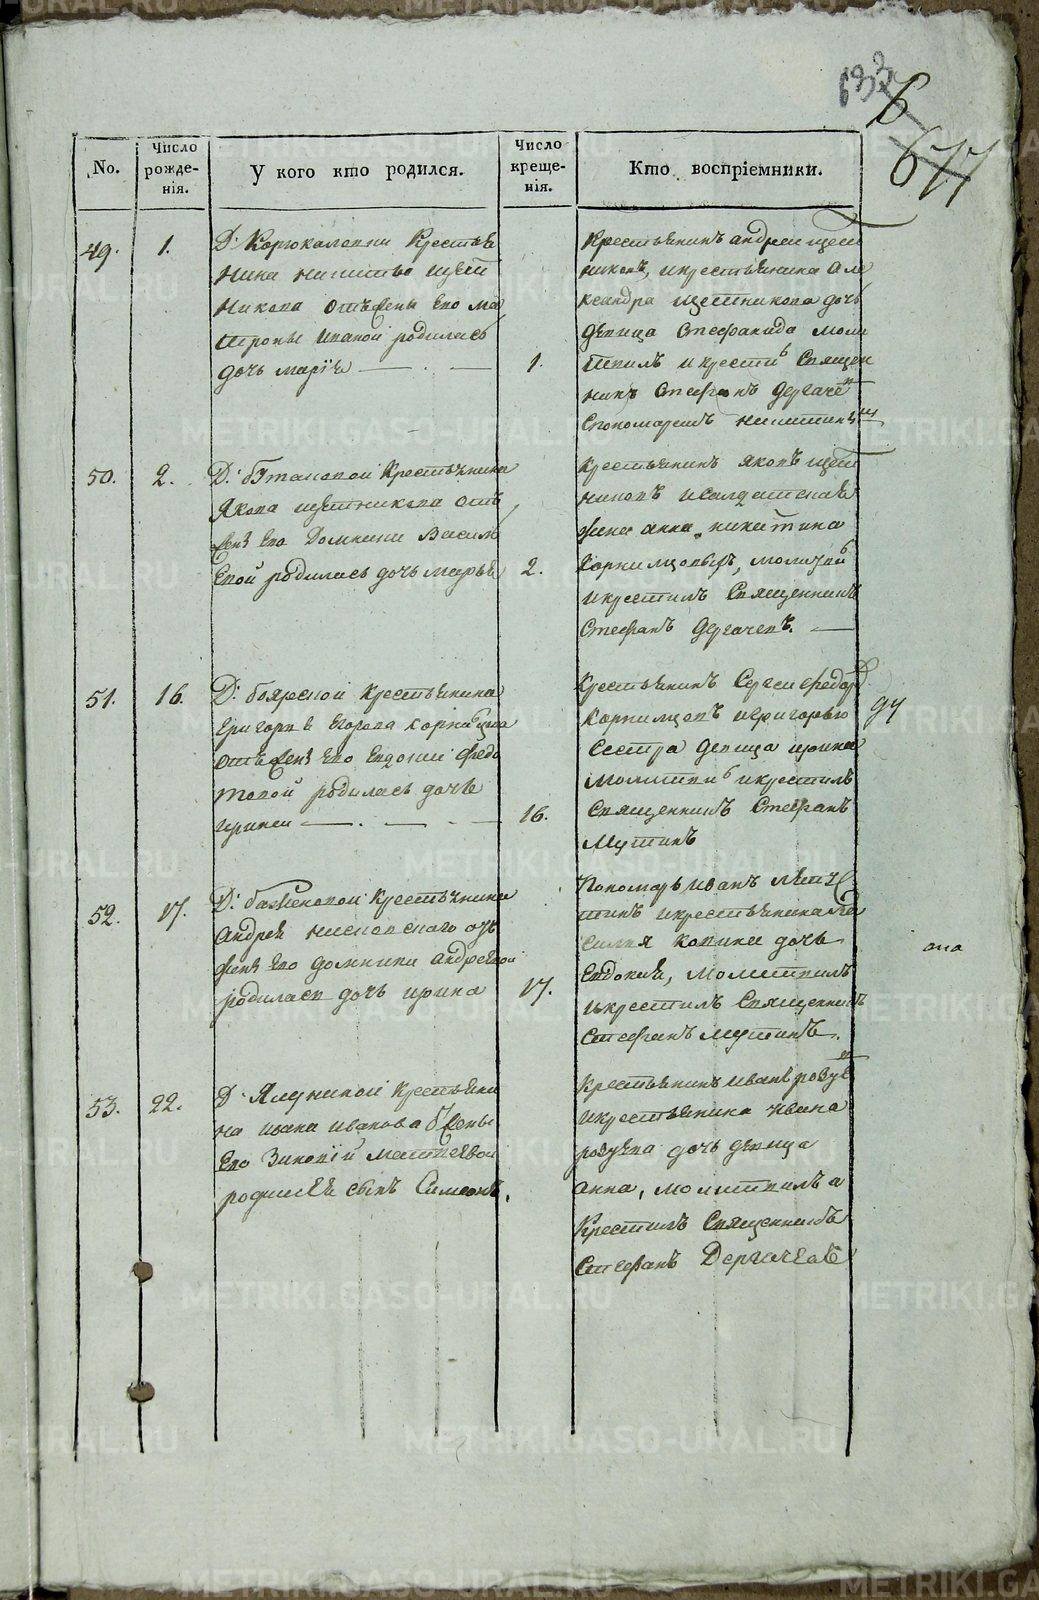 633
6
677
No.
Число рожде-нія.
У кого кто родился.
Число креще-нія.
Кто воспріемники.
49.
1.
Д: Корюкаловки Крестья
нина никиты щет
никова отъ жены его ма
троны ивановой родилась
дочь марія
1.
Крестьянинъ андреи щет
никовъ, и крестьянина але
ксандра щетникова дочь
девица Стефанида моли
твилъ и крестилъ Священ
никъ Стефанъ Дергачевъ
50.
2.
Д: Крестьянина
Якова щетникова отъ
жены его Домники Василь
евой родилась дочь марья
2.
Крестьянинъ яковъ щет
никовъ и салдатская
жена анна никитина
молитвилъ
и крестилъ Священникъ
Стефанъ Дергачевъ.
51.
16.
Д: боярской крестьянина
григорья Егорова
отъ жены его Евдокии федо
товой родилась дочь
ирина
16.
Крестьянинъ Сергеи федор
и григорью
Сестра девица ирина
молитвилъ и крестилъ
Священникъ Стефанъ
Мутинъ
52.
17.
Д: баженовой крестьянина
андрея отъ
жены его домники андреевой
родилась дочь ирина
17.
Пономарь иванъ
и крестьянина ва
силья копика дочь
Евдокия, молитвилъ
и крестилъ Священникъ
Стефанъ мутинъ.
53.
22.
Д: Ялуниной крестьяни
на ивана иванова отъ жены
его Зиновіи матвеевой
родился сынъ Симеонъ.
крестьянинъ иванъ розуе
и крестьянина ивана
розуева дочь девица
анна, молитвилъ а
крестилъ Священникъ
Стефанъ Дергачевъ
METRIKI.GASO-URAL.RU